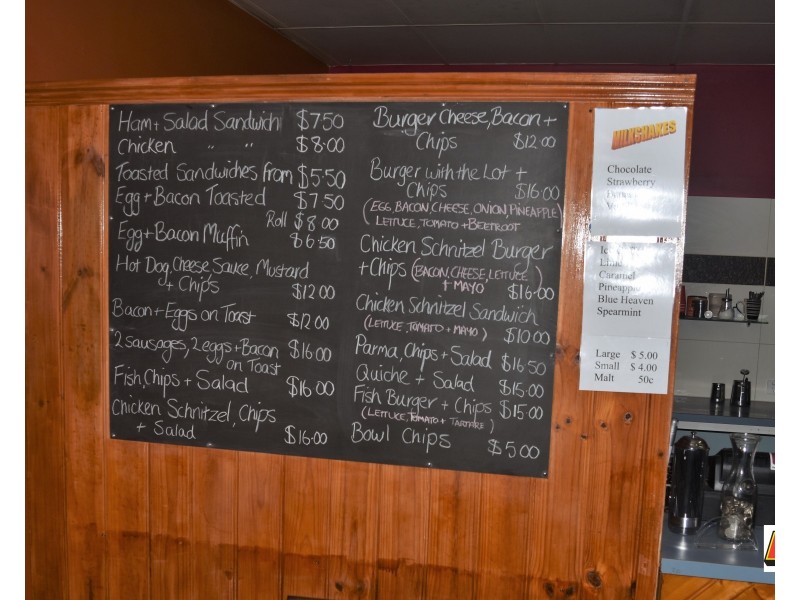 Ham + Salad Sandwich $7.50
Chicken " " $8.00
Toasted Sandwiches from $5.50
Egg + Bacon Toasted $7.50
Roll $8.00
Egg + Bacon Muffin $6.50
Hot Dog, Cheese, Sauce, Mustard
+ Chips $12.00
Bacon + Eggs on Toast $12.00
2 Sausages, 2 eggs + Bacon $16.00
on Toast
Fish, Chips + Salad $16.00
Chicken Schnitzel, Chips
+ Salad $16.00
Burger Cheese, Bacon +
Chips $12.00
Burger with the Lot +
Chips $16.00
(EGG, BACON, CHEESE, ONION, PINEAPPLE
LETTUCE, TOMATO + BEETROOT)
Chicken Schnitzel Burger
+ Chips (BACON, CHEESE, LETTUCE
+ MAYO) $16.00
Chicken Schnitzel Sandwich
(LETTUCE, TOMATO + MAYO) $10.00
Parma, Chips + Salad $16.50
Quiche + Salad $15.00
Fish Burger + Chips $15.00
(LETTUCE, TOMATO + TARTARE)
Bowl Chips $5.00
MILKSHAKES
Chocolate
Strawberry
Caramel
Pineapple
Blue Heaven
Spearmint
Large $ 5.00
Small $ 4.00
Malt 50c